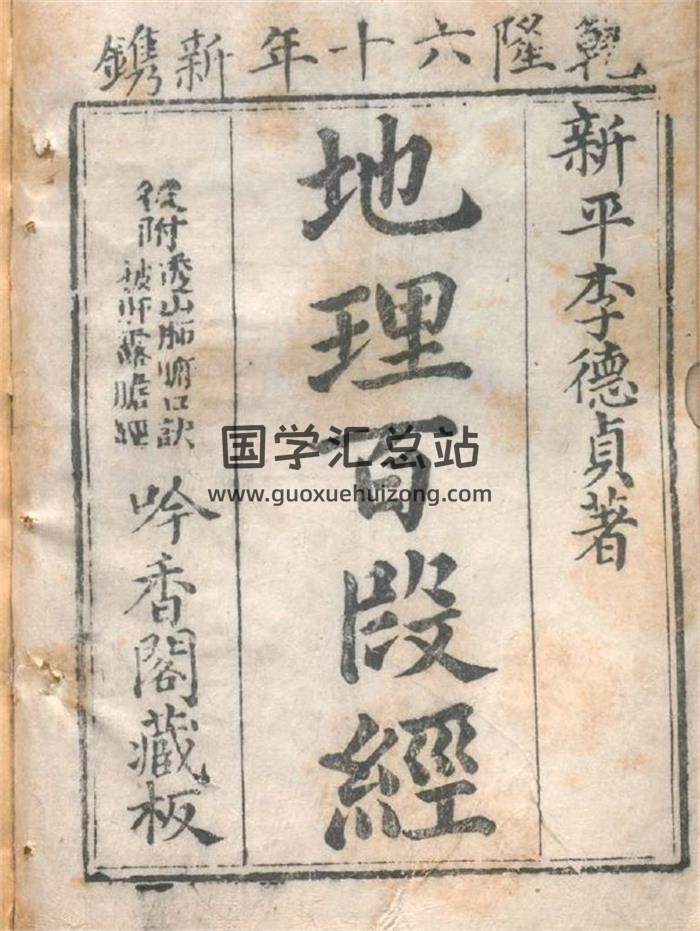 乾隆六十年新鐫
新平李德貞著
地理百段經
後附透山肺腑口訣
秘師露膽經
吟香閣藏板
国学汇总站
www.guoxuehuizong.com